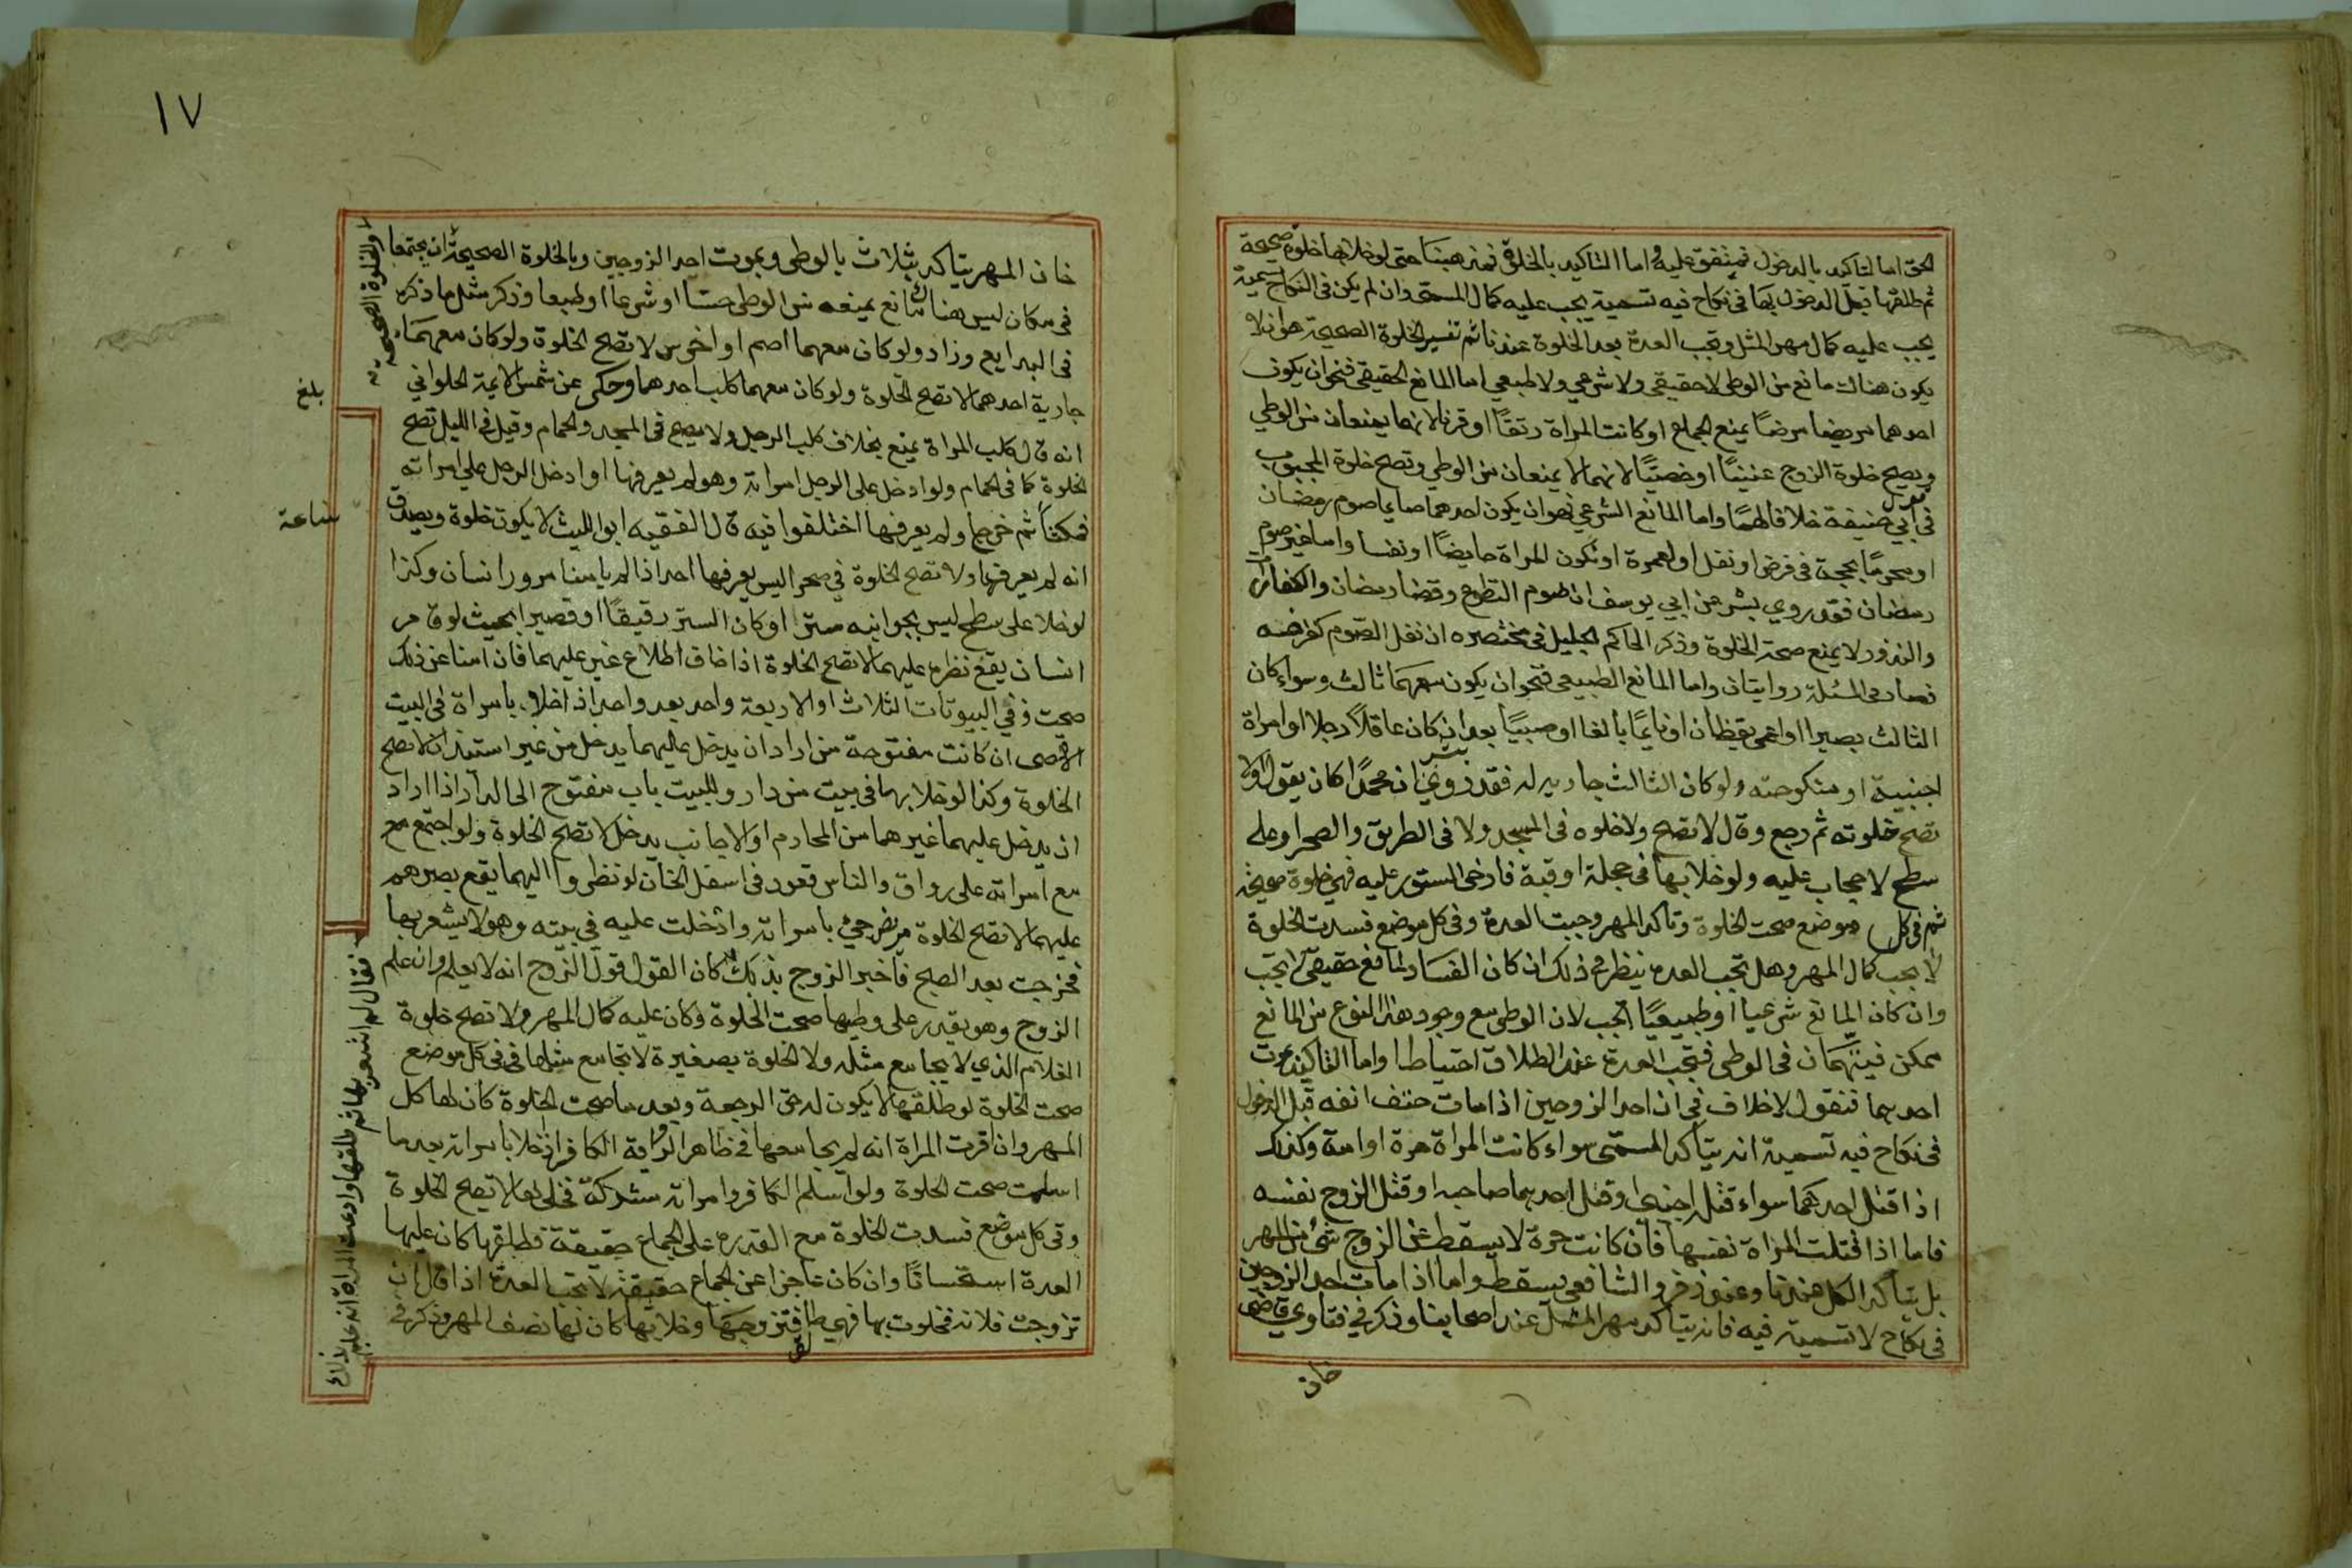 الحق اما التاكيد بالدخول فمتفق عليه واما التاكيد بالخلوة فمذهبنا حتى لو خلا بها خلوة صحيحة
ثم طلقها قبل الدخول بها فى نكاح فيه تسمية يجب عليه كمال المسمى وان لم يكن فى النكاح تسمية
يجب عليه كمال مهر المثل وتجب العدة بعد الخلوة عندنا ثم تفسير الخلوة الصحيحة هو ان لا
يكون هناك مانع من الوطى لا حقيقي ولا شرعي ولا طبيعي اما المانع الحقيقي فنحو ان يكون
احدهما مريضا مرضا يمنع الجماع او كانت المراة رتقا او قرنا لانهما يمنعان من الوطي
ويصح خلوة الزوج عنينا او خصيا لانهما لا يمنعان من الوطي وتصح خلوة المجبوب
فى ابي حنيفة خلافا لهما واما المانع الشرعي فهو ان يكون احدهما صايما صوم رمضان
او محرما بحجة فى فرض او نفل او لعمرة او تكون المراة حايضا او نفسا واما غير صوم
رمضان فقد روي بشر عن ابي يوسف ان صوم التطوع وقضا رمضان والكفارات
والنذور لا يمنع صحة الخلوة وذكر الحاكم الجليل فى مختصره ان نفل الصوم كفرضه
فصار فى المسئلة روايتان واما المانع الطبيعي فنحو ان يكون معهما ثالث وسواء كان
الثالث بصيرا او اعمى يقظان او نايما بالغا او صبيا بعد ان كان عاقلا رجلا او امراة
اجنبية او منكوحته ولو كان الثالث جارية له فقد روي ان محمدا كان يقول اولا
تصح خلوته ثم رجع وقال لا تصح ولا خلوه فى المسجد ولا فى الطريق والصحرا وعلى
سطح لا حجاب عليه ولو خلا بها فى حجلة او قبة فارخى الستور عليه فهي خلوة صحيحة
ثم فى كل موضع صحت الخلوة وتاكد المهر وجبت العدة وفى كل موضع فسدت الخلوة
لا يجب كمال المهر وهل تجب العدة ينظر فى ذلك ان كان الفساد لمانع حقيقي لا يجب
وان كان المانع شرعيا او طبيعيا تجب لان الوطى مع وجود هذا النوع من المانع
ممكن فيتهمان فى الوطى فتجب العدة عند الطلاق احتياطا واما التاكيد بموت
احدهما فنقول لا خلاف فى ان احد الزوجين اذا مات حتف انفه قبل الدخول
فى نكاح فيه تسمية انه يتاكد المسمى سواء كانت المراة حرة او امة وكذلك
اذا قتل احدهما سواء قتله اجنبى او قتل احدهما صاحبه او قتل الزوج نفسه
فاما اذا قتلت المراة نفسها فان كانت حرة لا يسقط عن الزوج شئ من المهر
بل يتاكد الكل عندنا وعند زفر والشافعى يسقط واما اذا مات احد الزوجين
فى نكاح لا تسمية فيه فانه يتاكد مهر المثل عند اصحابنا وذكر فى فتاوي قاضى
خان
١٧
خان المهر يتاكد بثلاث بالوطى وبموت احد الزوجين وبالخلوة الصحيحة ان يجتمعا
والخلوة الصحيحة
فى مكان ليس هناك مانع يمنعه من الوطى حسا او شرعا او طبعا وذكر مثل ما ذكره
فى البدايع وزاد ولو كان معهما اصم او اخرس لا تصح الخلوة ولو كان معهما
جارية احدهما لا تصح الخلوة ولو كان معهما كلب احدهما وحكى عن شمس الايمة الحلواني
بلغ
انه قال كلب المراة يمنع بخلاف كلب الرجل ولا يصح فى المسجد والحمام وقيل فى الليل تصح
الخلوة كما فى الحمام ولو ادخل على الرجل امراته وهو لم يعرفها او ادخل الرجل على امراته
فمكثا ثم خرجا ولم يعرفها اختلفوا فيه قال الفقيه ابو الليث لا يكون خلوة ويصدق
ساعة
انه لم يعرفها ولا تصح الخلوة فى صحرا ليس يعرفها احد اذا لم يامنا مرور انسان وكذا
لو خلا على سطح ليس بجوانبه ستر او كان الستر رقيقا او قصيرا بحيث لو قام
انسان يقع نظره عليهما لا تصح الخلوة اذا خاف اطلاع غير عليهما فان امنا عن ذلك
صحت وفي البيوتات الثلاث او الاربعة واحد بعد واحد اذا خلا بامراة فى البيت
الاقصى ان كانت مفتوحة من اراد ان يدخل عليهما يدخل من غير استيذان لا تصح
الخلوة وكذا لو خلا بهما فى بيت من دار وللبيت باب مفتوح الى الدار اذا اراد
ان يدخل عليهما غيرهما من المحارم او الاجانب يدخل لا تصح الخلوة ولو اجتمع مع
مع امراته على رواق والناس قعود فى اسفل الخان لو نظروا اليهما يقع بصرهم
عليهما لا تصح الخلوة مريض جئ بامراته وادخلت عليه فى بيته وهو لا يشعر بها
فخرجت بعد الصبح فاخبر الزوج بذلك كان القول قول الزوج انه لا يعلم وان علم
فقال لم اشعر بها ثم طلقها وادعت المراة انه علم
الزوج وهو يقدر على وطيها صحت الخلوة وكان عليه كمال المهر ولا تصح خلوة
الغلام الذي لا يجامع مثله ولا الخلوة بصغيرة لا تجامع مثلها فى كل موضع
صحت الخلوة لو طلقها لا يكون له حق الرجعة وبعد ما صحت الخلوة كان لها كل
المهر وان اقرت المراة انه لم يجامعها فى ظاهر الرواية الكافر اذا خلا بامراته بعد ما
اسلمت صحت الخلوة ولو اسلم الكافر وامراته مشركة فخلى بها لا تصح الخلوة
وفى كل موضع فسدت الخلوة مع القدرة على الجماع حقيقة فطلقها كان عليها
العدة استحسانا وان كان عاجزا عن الجماع حقيقة لا تجب العدة اذا قال ان
تزوجت فلانة فخلوت بها فهي طالق فتزوجها وخلا بها كان لها نصف المهر وذكر فى